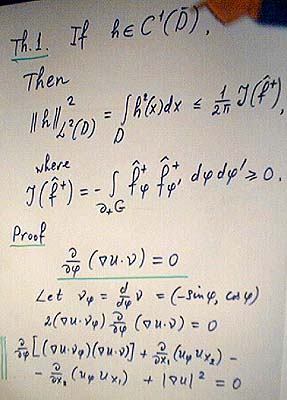 Th.1. If h ∈ C¹(D̄),
Then
‖h‖²_{L²(D)} = ∫_D h²(x)dx ≤ 1/2π J(f̂⁺),
where
J(f̂⁺) = - ∫_{∂₊G} f̂⁺_φ f̂⁺_φ' dφ dφ' ⩾ 0.
Proof
∂/∂φ (∇u·ν) = 0
Let ν_φ = d/dφ ν = (-sinφ, cosφ)
2(∇u·ν_φ) ∂/∂φ (∇u·ν) = 0
∂/∂φ [(∇u·ν_φ)(∇u·ν)] + ∂/∂x₁ (u_φ u_x₂) -
- ∂/∂x₂ (u_φ u_x₁) + |∇u|² = 0